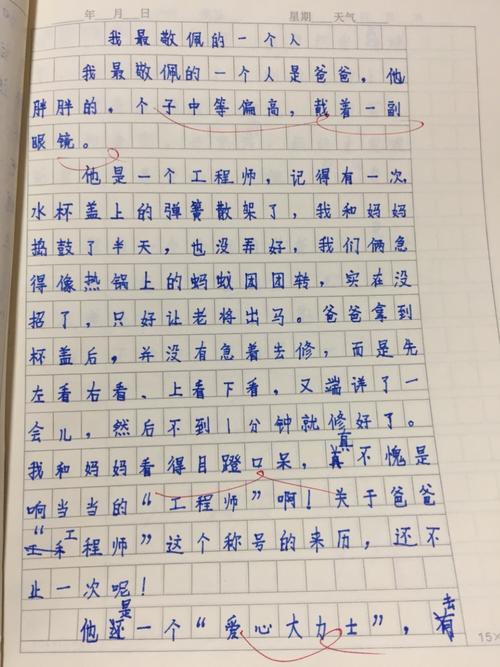 年 月 日 星期 天气
我最敬佩的一个人
我最敬佩的一个人是爸爸，他
胖胖的，个子中等偏高，戴着一副
眼镜。
他是一个工程师，记得有一次，
水杯盖上的弹簧散架了，我和妈妈
捣鼓了半天，也没弄好，我们俩急
得像热锅上的蚂蚁团团转，实在没
招了，只好让老将出马。爸爸拿到
杯盖后，并没有急着去修，而是先
左看右看、上看下看，又端详了一
会儿，然后不到1分钟就修好了。
我和妈妈看得目蹬口呆，真不愧是
响当当的“工程师”啊！关于爸爸
“工程师”这个称号的来历，还不
止一次呢！
他还是一个“爱心大力士”，去
15×